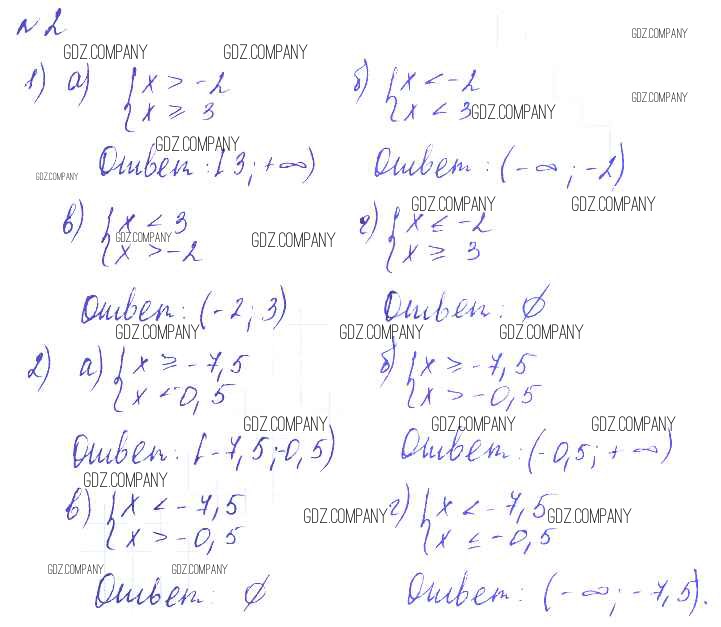 №2
GDZ.COMPANY GDZ.COMPANY GDZ.COMPANY
1) а) { x > -2 б) { x < -2
x ≥ 3 x < 3 GDZ.COMPANY GDZ.COMPANY
GDZ.COMPANY
Ответ: [3; +∞) Ответ: (-∞; -2)
GDZ.COMPANY
GDZ.COMPANY GDZ.COMPANY
в) { x < 3 г) { x ≤ -2
GDZ.COMPANY GDZ.COMPANY
x > -2 x ≥ 3
Ответ: (-2; 3) Ответ: ∅
GDZ.COMPANY GDZ.COMPANY GDZ.COMPANY
2) а) { x ≥ -7,5 б) { x ≥ -7,5
x < -0,5 x > -0,5
GDZ.COMPANY GDZ.COMPANY GDZ.COMPANY
Ответ: [-7,5; -0,5) Ответ: (-0,5; +∞)
GDZ.COMPANY
в) { x < -7,5 г) { x < -7,5
GDZ.COMPANY GDZ.COMPANY
x > -0,5 x ≤ -0,5
GDZ.COMPANY GDZ.COMPANY
Ответ: ∅ Ответ: (-∞; -7,5).